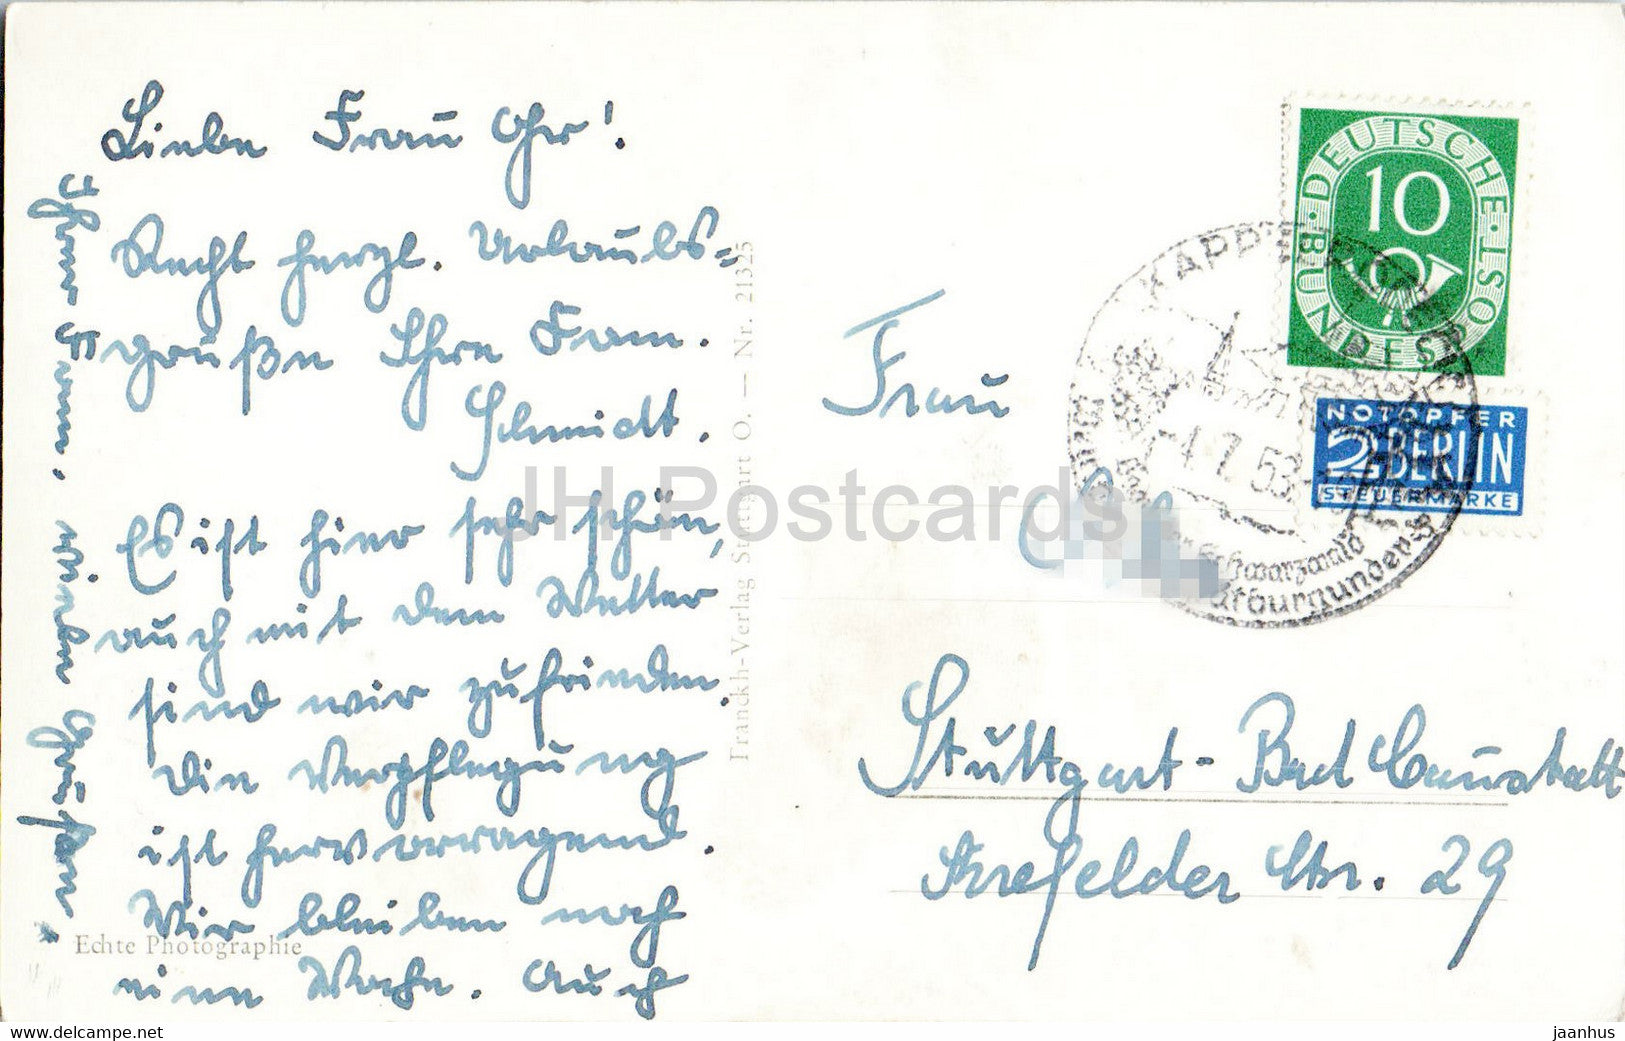 Liebe Frau Ohr!
Recht herzl. Urlaubs-
grüße Ihre Fam.
Schmidt.
Es ist hier sehr schön,
auch mit dem Wetter
sind wir zufrieden.
Die Verpflegung
ist hervorragend.
Wir bleiben noch
eine Woche. Auch
Ihrem Mann, viele Grüße.
Echte Photographie
Franckh-Verlag Stuttgart O. — Nr. 21325
Frau
Stuttgart-Bad Cannstatt
Krefelder Str. 29
DEUTSCHE BUNDESPOST
10
NOTOPFER
2 BERLIN
STEUERMARKE
KAPPEL
-4.7.53
Schwarzwald
JH Postcards
www.delcampe.net
jaanhus